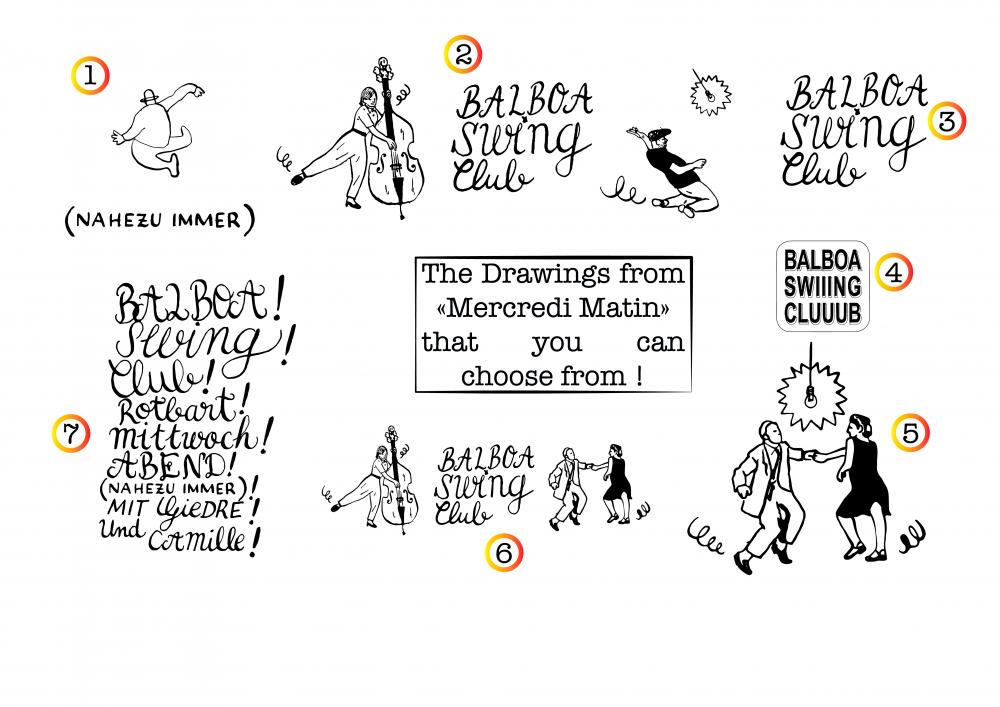 1
(NAHEZU IMMER)
2
BALBOA
Swing
Club
BALBOA
Swing
Club
3
The Drawings from
«Mercredi Matin»
that you can
choose from !
BALBOA
SWIIING
CLUUUB
4
5
BALBOA
Swing
Club
6
7
BALBOA!
Swing!
Club!
Rotbart!
mittwoch!
ABEND!
(NAHEZU IMMER)!
MIT GIEDRE!
Und CAMille!